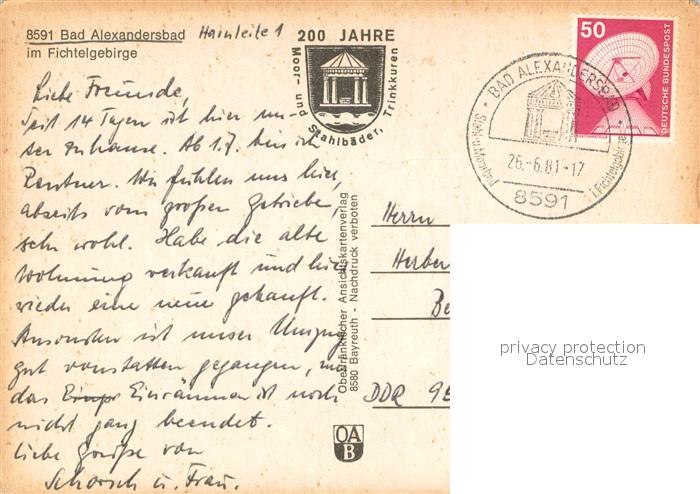 8591 Bad Alexandersbad Hainleite 1
im Fichtelgebirge
200 JAHRE
Moor- und Stahlbäder, Trinkkuren
50
DEUTSCHE BUNDESPOST
BAD ALEXANDERSBAD
26.-6.81-17
8591
i. Fichtelgebirge
Liebe Freunde,
seit 14 Tagen ist hier un-
ser Zuhause. Ab 1.7. bin ich
Rentner. Wir fühlen uns hier,
abseits vom großen Getriebe,
sehr wohl. Habe die alte
Wohnung verkauft und hier
wieder eine neue gekauft.
Ansonsten ist unser Umzug
gut vonstatten gegangen, nur
das Einräumen ist noch
nicht ganz beendet.
Liebe Grüße von
Schorsch u. Frau.
Oberfränkischer Ansichtskartenverlag
8580 Bayreuth - Nachdruck verboten
OA
B
Herrn
Herber
Be
DDR 95
privacy protection
Datenschutz